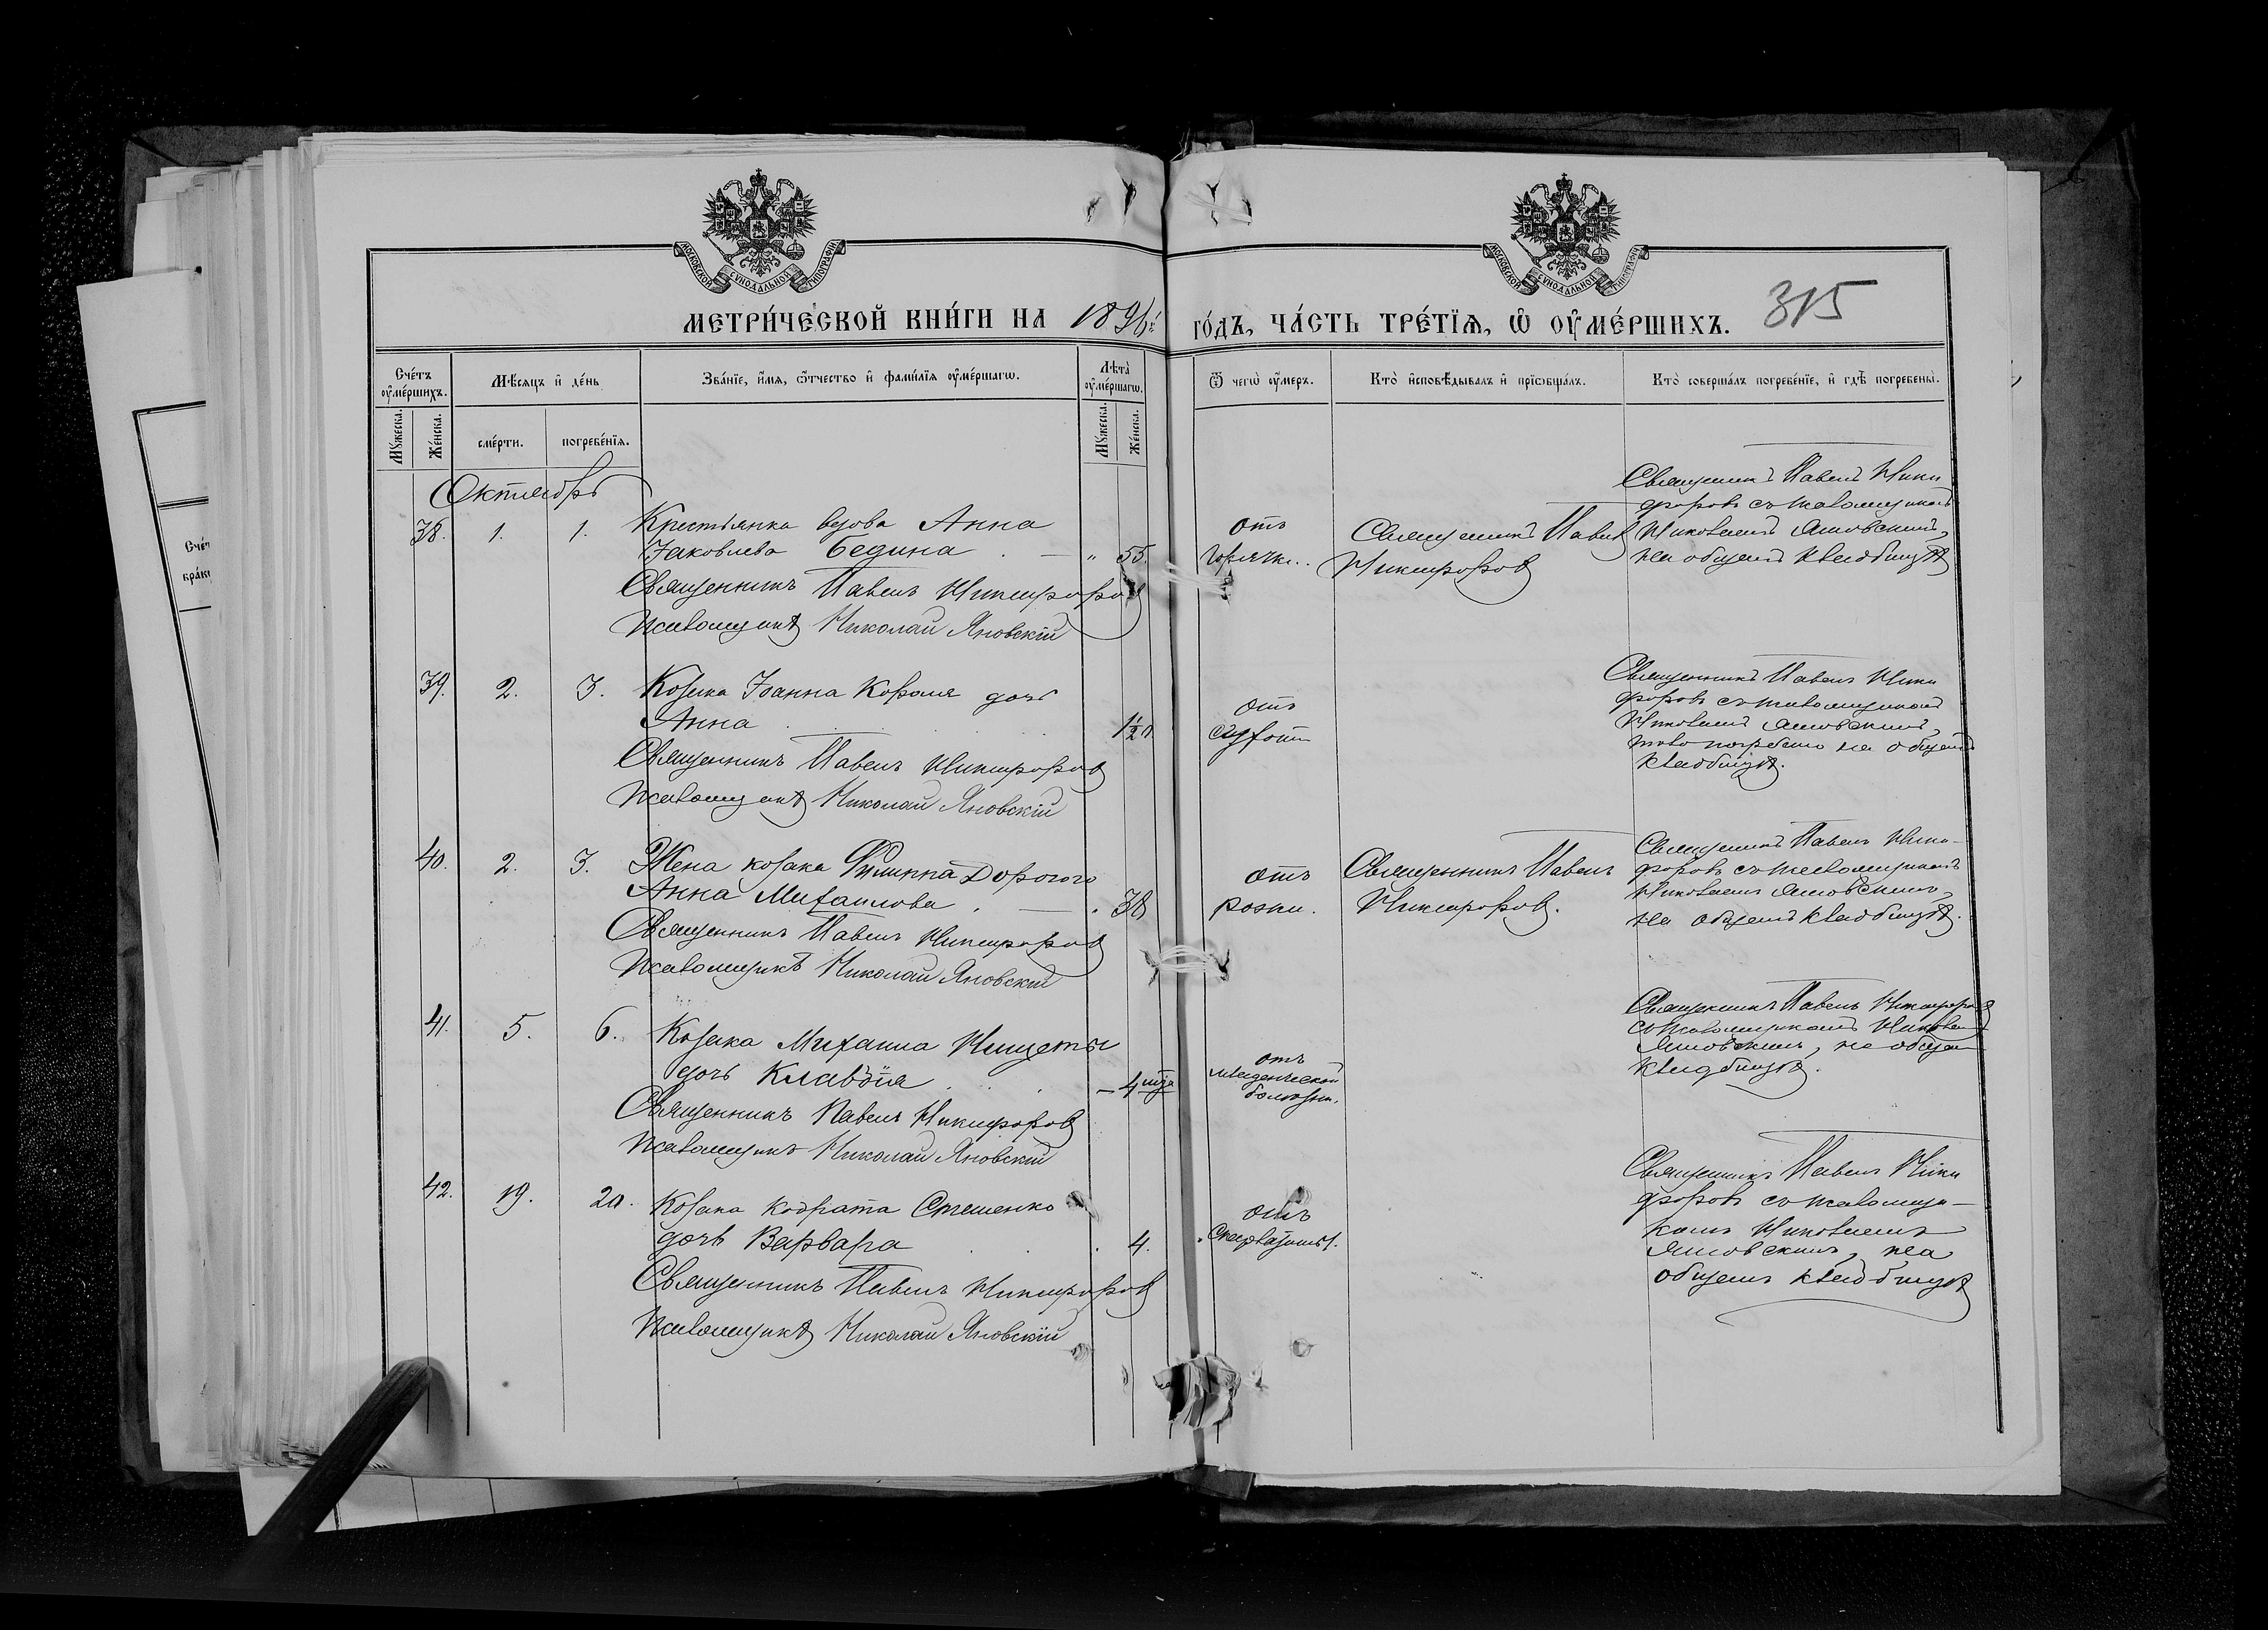 МОСКОВСКОЙ СѴНОДАЛЬНОЙ ТИПОГРАФІИ
МОСКОВСКОЙ СѴНОДАЛЬНОЙ ТИПОГРАФІИ
МЕТРИ́ЧЕСКОЙ КНИ́ГИ НА 1896й
ГО́ДЪ, ЧА́СТЬ ТРЕ́ТІѦ, Ѡ ОУ҆МЕ́РШИХЪ.
315
Сче́тъ оу҆ме́ршихъ.
Мѣ́сяцъ и҆ де́нь
Зва́нїе, и҆́мѧ, ѻ҆́тчество и҆ фами́лїѧ оу҆ме́ршагѡ.
Лѣ́та оу҆ме́ршагѡ.
Ѿ чегѡ̀ оу҆́меръ.
Кто̀ и҆сповѣ́дывалъ и҆ прїѡбща́лъ.
Кто̀ соверша́лъ погребе́нїе, и҆ гдѣ̀ погребены̀.
Мꙋ́жеска.
Же́нска.
сме́рти.
погребе́нїѧ.
Мꙋ́жеска.
Же́нска.
Октябрь
38. 1. 1. Крестьянка вдова Анна
Іаковлева Бедина " 55.
Священникъ Павелъ Никифоровъ
Псаломщикъ Николай Яновскій
отъ
горячк.
Священникъ Павелъ
Никифоровъ
Священникъ Павелъ Ники
форовъ съ псаломщикомъ
Николаемъ Яновскимъ,
на общемъ кладбищѣ
39. 2. 3. Козака Іоанна Короля дочь
Анна 1½
Священникъ Павелъ Никифоровъ
Псаломщикъ Николай Яновскій
отъ
сухот
Священникъ Павелъ Ники
форовъ съ псаломщикомъ
Николаемъ Яновскимъ,
погребено на общемъ
кладбищѣ.
40. 2. 3. Жена козака Филиппа Дорогого
Анна Михаилова 38
Священникъ Павелъ Никифоровъ
Псаломщикъ Николай Яновскій
отъ
рожи.
Священникъ Павелъ
Никифоровъ.
Священникъ Павелъ Ники-
форовъ съ псаломщикомъ
Николаемъ Яновскимъ,
на общемъ кладбищѣ.
41. 5. 6. Козака Михаила Нищеты
дочь Клавдія – 4 мца
Священникъ Павелъ Никифоровъ
Псаломщикъ Николай Яновскій
отъ
младенческой
болѣзни.
Священникъ Павелъ Никифоровъ
съ псаломщикомъ Николаемъ
Яновскимъ, на общем
кладбищѣ.
42. 19. 20. Козака Кодрата Стешенко
дочь Варвара 4.
Священникъ Павелъ Никифоровъ
Псаломщикъ Николай Яновскій
отъ
скарлатины.
Священникъ Павелъ Ники
форовъ съ псаломщи-
комъ Николаемъ
Яновскимъ, на
общемъ кладбищѣ